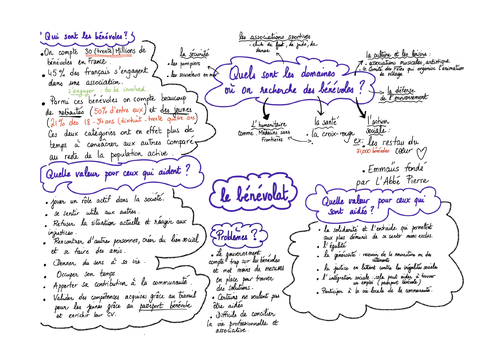 Qui sont les bénévoles ?
• On compte 30 (trente) Millions de
bénévoles en France.
• 45% des français s'engagent
dans une association.
s'engager : to be involved
• Parmi ces bénévoles on compte beaucoup
de retraités (50% d'entre eux) et des jeunes
(21% des 18-30 ans)
Ces deux catégories ont en effet plus de
temps à consacrer aux autres comparé
au reste de la population active
Quelle valeur pour ceux qui aident ?
• jouer un rôle actif dans la société.
• se sentir utile aux autres
• Refuser la situation actuelle et réagir aux
injustices
• Rencontrer d'autres personnes, créer du lien social et
se faire des amis.
• Donner du sens à sa vie
• Occuper son temps
• Apporter sa contribution à la communauté.
• Valider des compétences acquises grâce au travail
pour les jeunes grâce au passeport bénévole
et enrichir leur CV.
le bénévolat
Problèmes ?
• Le gouvernement
compte trop sur les bénévoles
et met moins de mesures
en place pour trouver
des solutions.
• Certains ne veulent pas
être aidés
• Difficile de concilier
la vie professionnelle et
associative
Quels sont les domaines
où on recherche des bénévoles ?
les associations sportives
• club de foot, de judo, de
danse
la sécurité
• les pompiers
• les secouristes en mer
la culture et les loisirs
• associations musicales, artistiques
• le Comité des Fêtes qui organise l'animation
du village
la défense
de l'environnement
L'humanitaire
comme Médecins sans
Frontières
la santé
la croix-rouge
l'action
sociale :
ex : les restau du
cœur
bénévoles
• Emmaüs fondé
par L'Abbé Pierre
Quelle valeur pour ceux qui
sont aidés ?
• la solidarité et l'entraide qui permettent
aux plus démunis de se sentir moins exclus
• L'égalité
• la générosité : recevoir de la nourriture ou des
vêtements
• la justice en luttant contre les inégalités sociales
• l'intégration sociale : cela peut aider à trouver
un emploi
• Participer à la vie locale de la communauté.